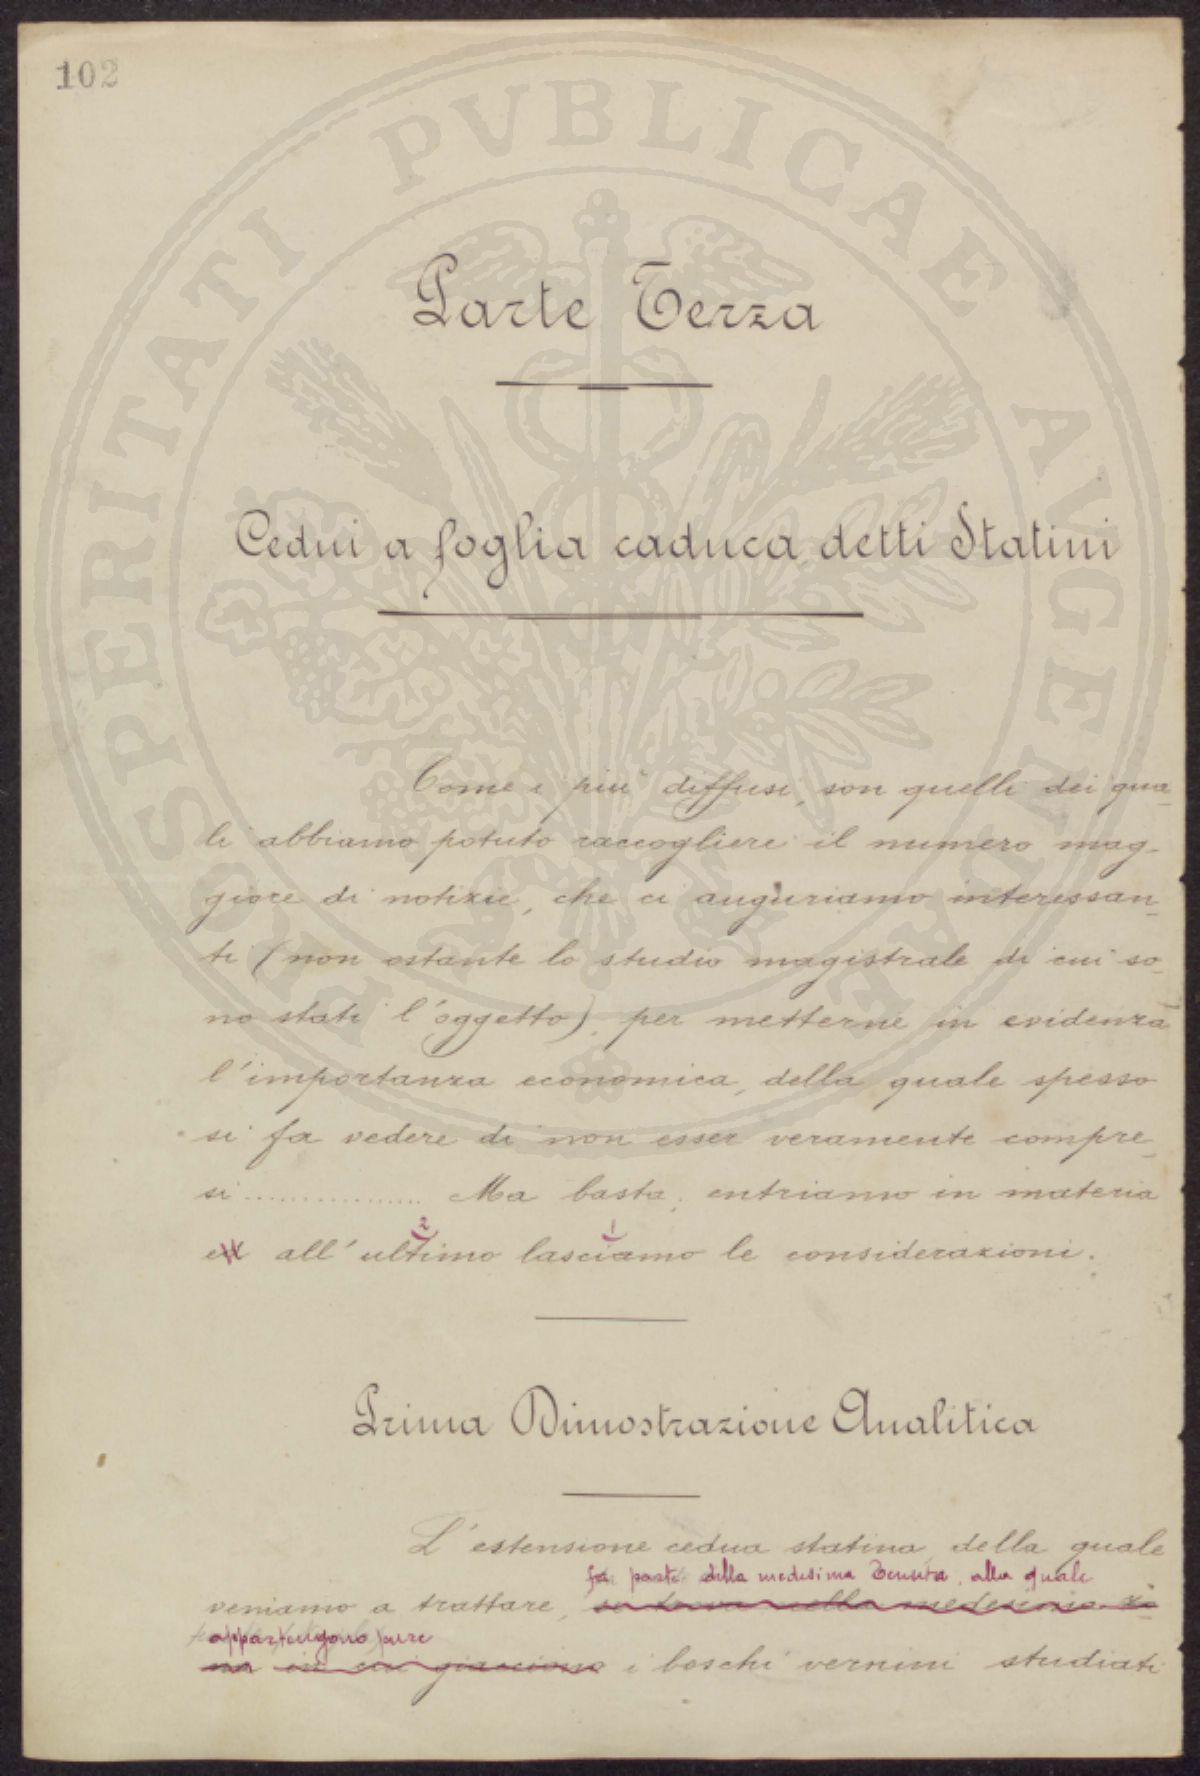 102
PROSPERITATI PVBLICAE AVGENDAE
Parte Terza
Cedui a foglia caduca detti Statini
Come i più diffusi, son quelli dei qua-
li abbiamo potuto raccogliere il numero mag-
giore di notizie, che ci auguriamo interessan-
ti (non ostante lo studio magistrale di cui so-
no stati l'oggetto), per metterne in evidenza
l'importanza economica, della quale spesso
si fa vedere di non esser veramente compre-
si ................ Ma basta; entriamo in materia
e all' ultimo lasciamo le considerazioni.
2 1
Prima Dimostrazione Analitica
L'estensione cedua statina, della quale
fa parte della medesima Tenuta, alla quale
veniamo a trattare, si trova nella medesima zo
appartengono pure
na in cui giacciono i boschi vernini studiati